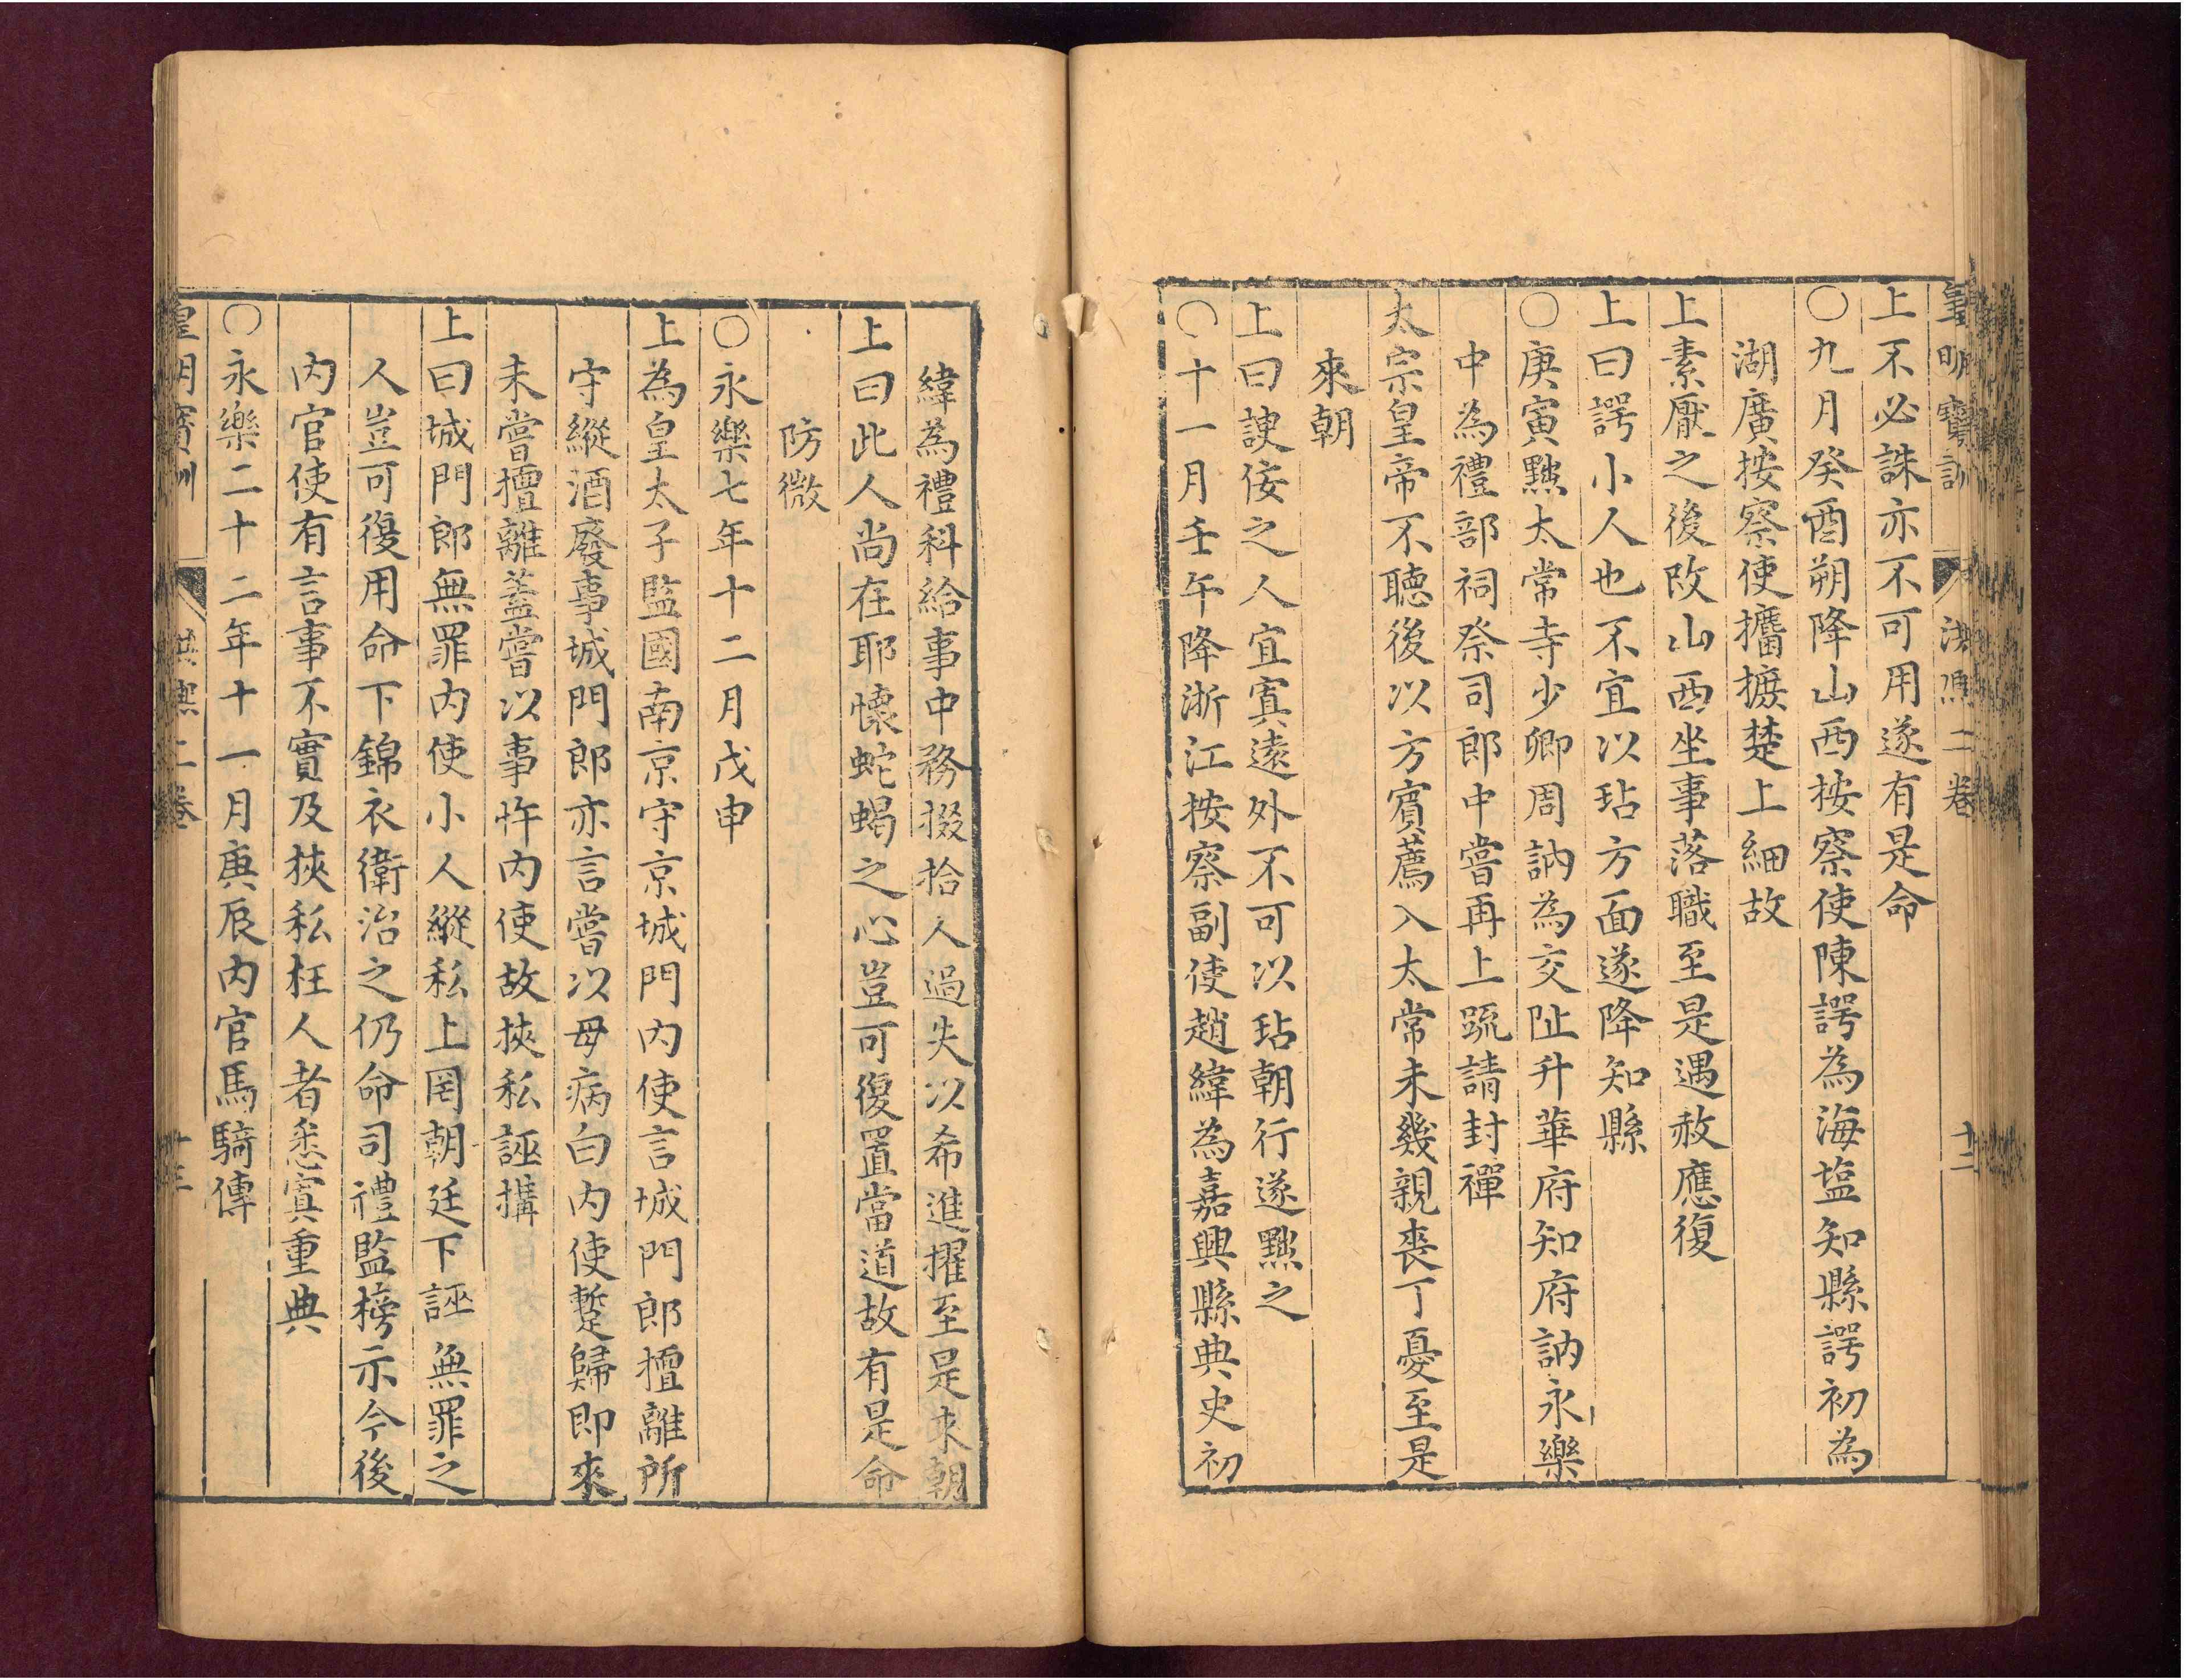 皇明寶訓 洪熙二卷 十二
上不必誅亦不可用遂有是命
○九月癸酉朔降山西按察使陳諤為海塩知縣諤初為
湖廣按察使摭楚上細故
上素厭之後改山西坐事落職至是遇赦應復
上曰諤小人也不宜以玷方面遂降知縣
○庚寅黜太常寺少卿周訥為交阯升華府知府訥永樂
中為禮部祠祭司郎中嘗再上䟽請封禪
太宗皇帝不聽後以方賔薦入太常未幾親喪丁憂至是
來朝
上曰諛佞之人宜寘遠外不可以玷朝行遂黜之
○十一月壬午降浙江按察副使趙緯為嘉興縣典史初
緯為禮科給事中務掇拾人過失以希進擢至是來朝
上曰此人尚在耶懷蛇蝎之心豈可復置當道故有是命
防微
○永樂七年十二月戊申
上為皇太子監國南京守京城門內使言城門郎擅離所
守縱酒廢事城門郎亦言嘗以母病白內使蹔歸即來
未嘗擅離蓋嘗以事忤內使故挾私誣搆
上曰城門郎無罪內使小人縱私上罔朝廷下誣無罪之
人豈可復用命下錦衣衛治之仍命司禮監榜示今後
內官使有言事不實及挾私枉人者悉寘重典
○永樂二十二年十一月庚辰內官馬騏傳
皇明寶訓 洪熙二卷 十三